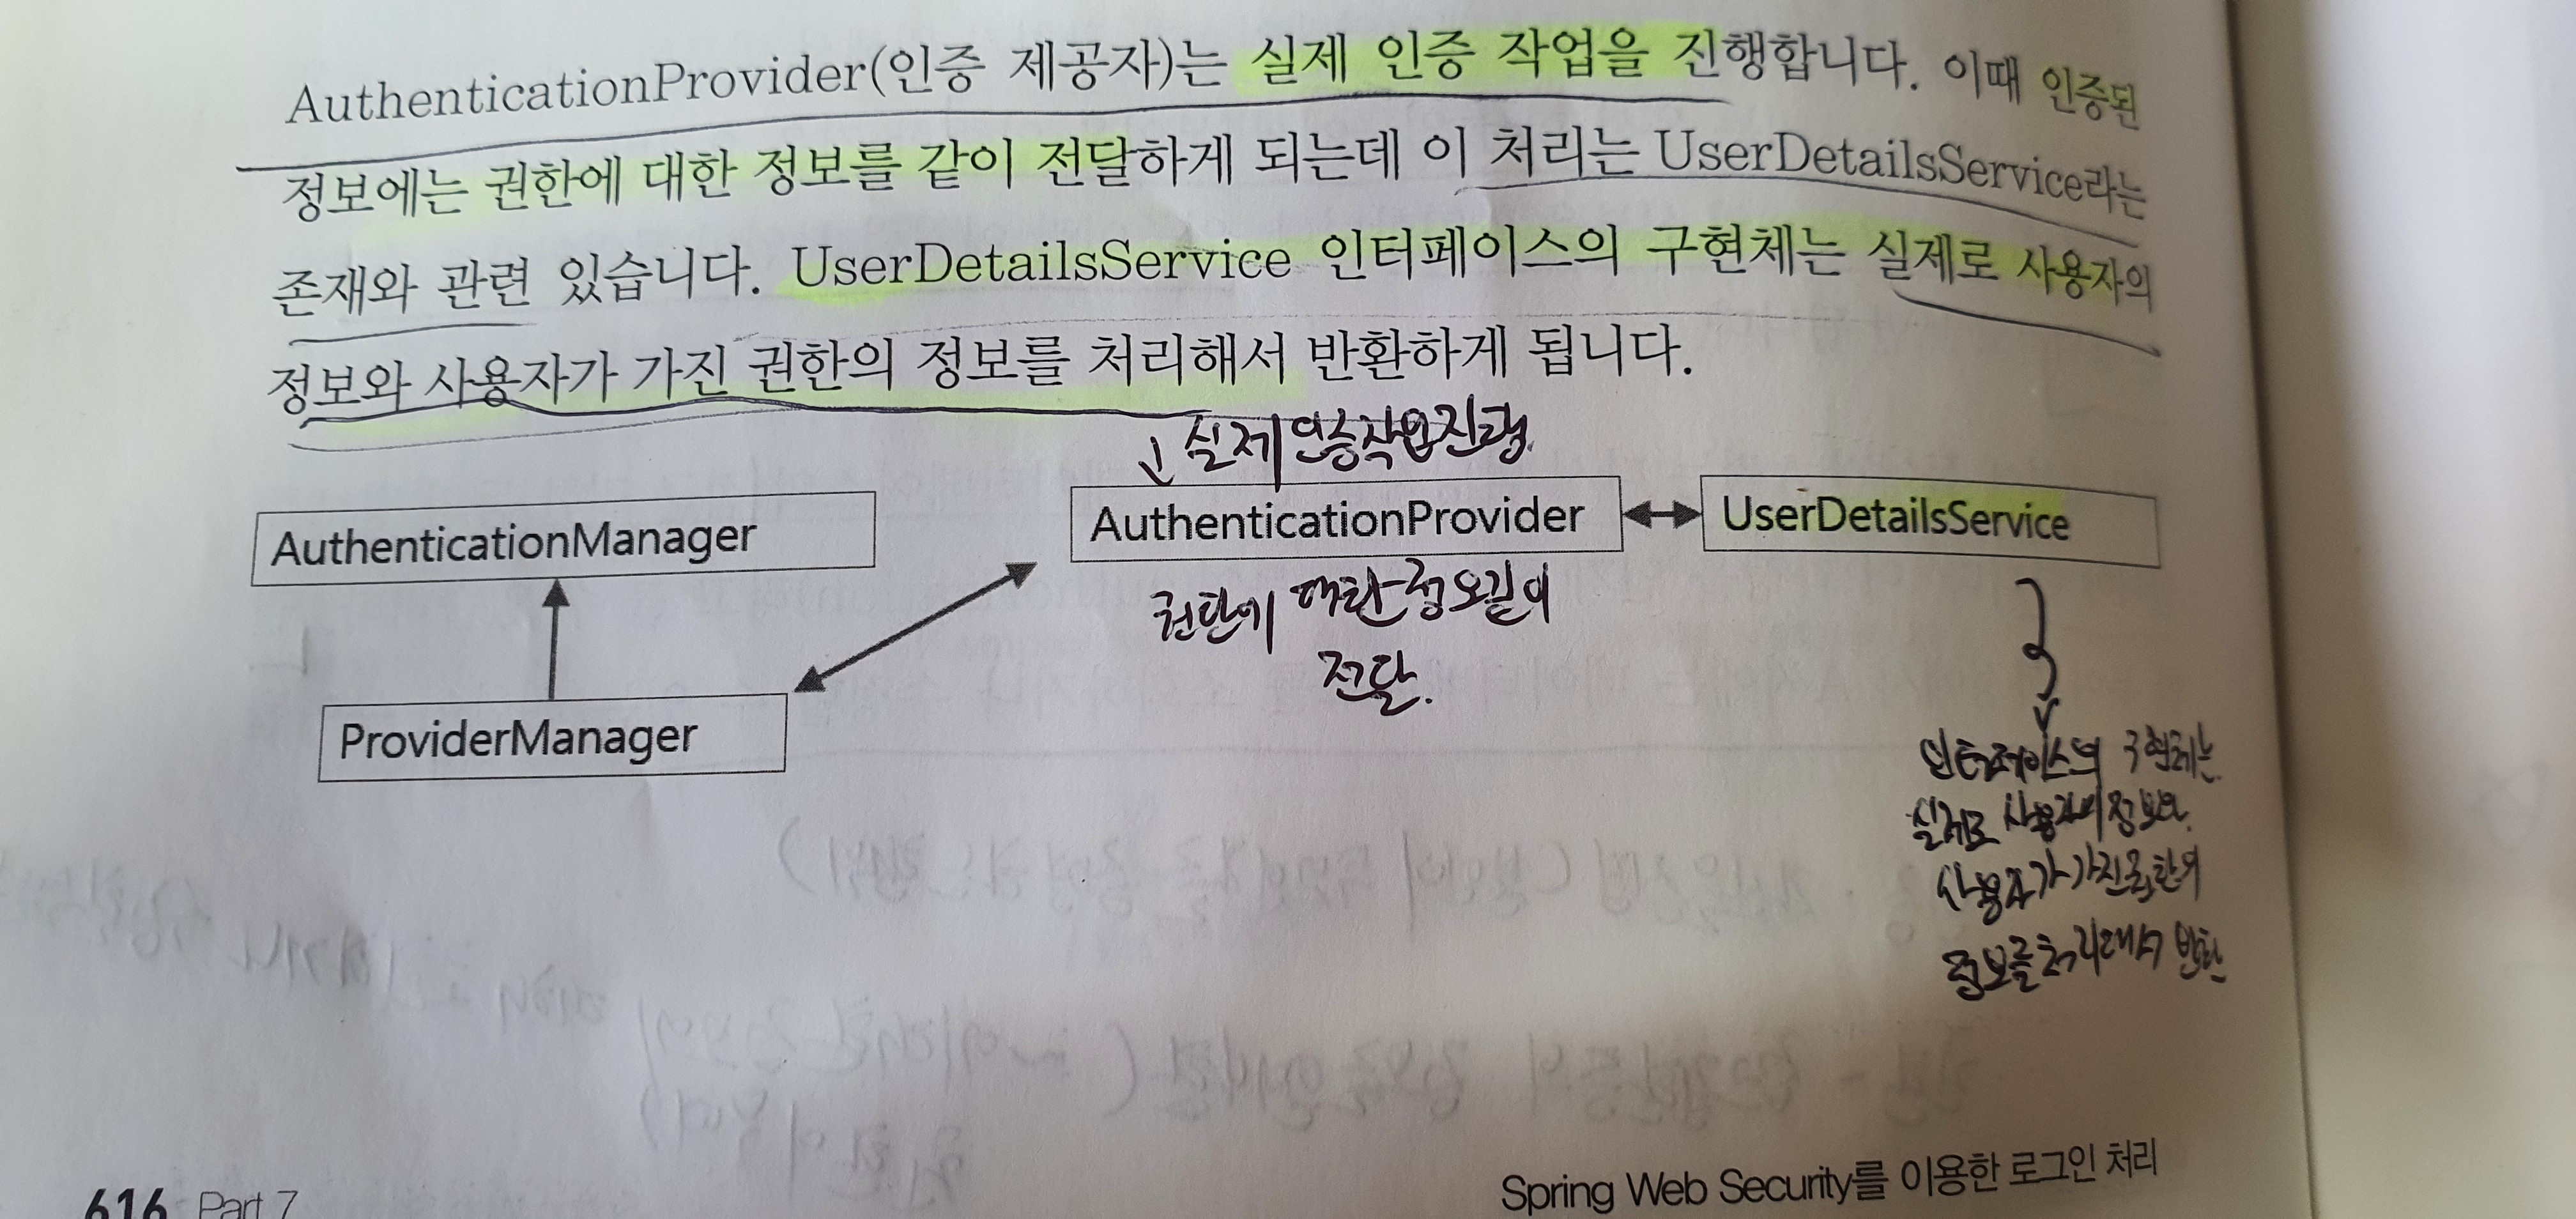 AuthenticationProvider(인증 제공자)는 실제 인증 작업을 진행합니다. 이때 인증된
정보에는 권한에 대한 정보를 같이 전달하게 되는데 이 처리는 UserDetailsService라는
존재와 관련 있습니다. UserDetailsService 인터페이스의 구현체는 실제로 사용자의
정보와 사용자가 가진 권한의 정보를 처리해서 반환하게 됩니다.
↓ 실제 인증작업진행
AuthenticationManager
AuthenticationProvider
UserDetailsService
권한에 대한 정보같이
전달.
ProviderManager
인터페이스의 구현체는
실제로 사용자의 정보와
사용자가 가진 권한의
정보를 처리해서 반환
616 Part 7
Spring Web Security를 이용한 로그인 처리